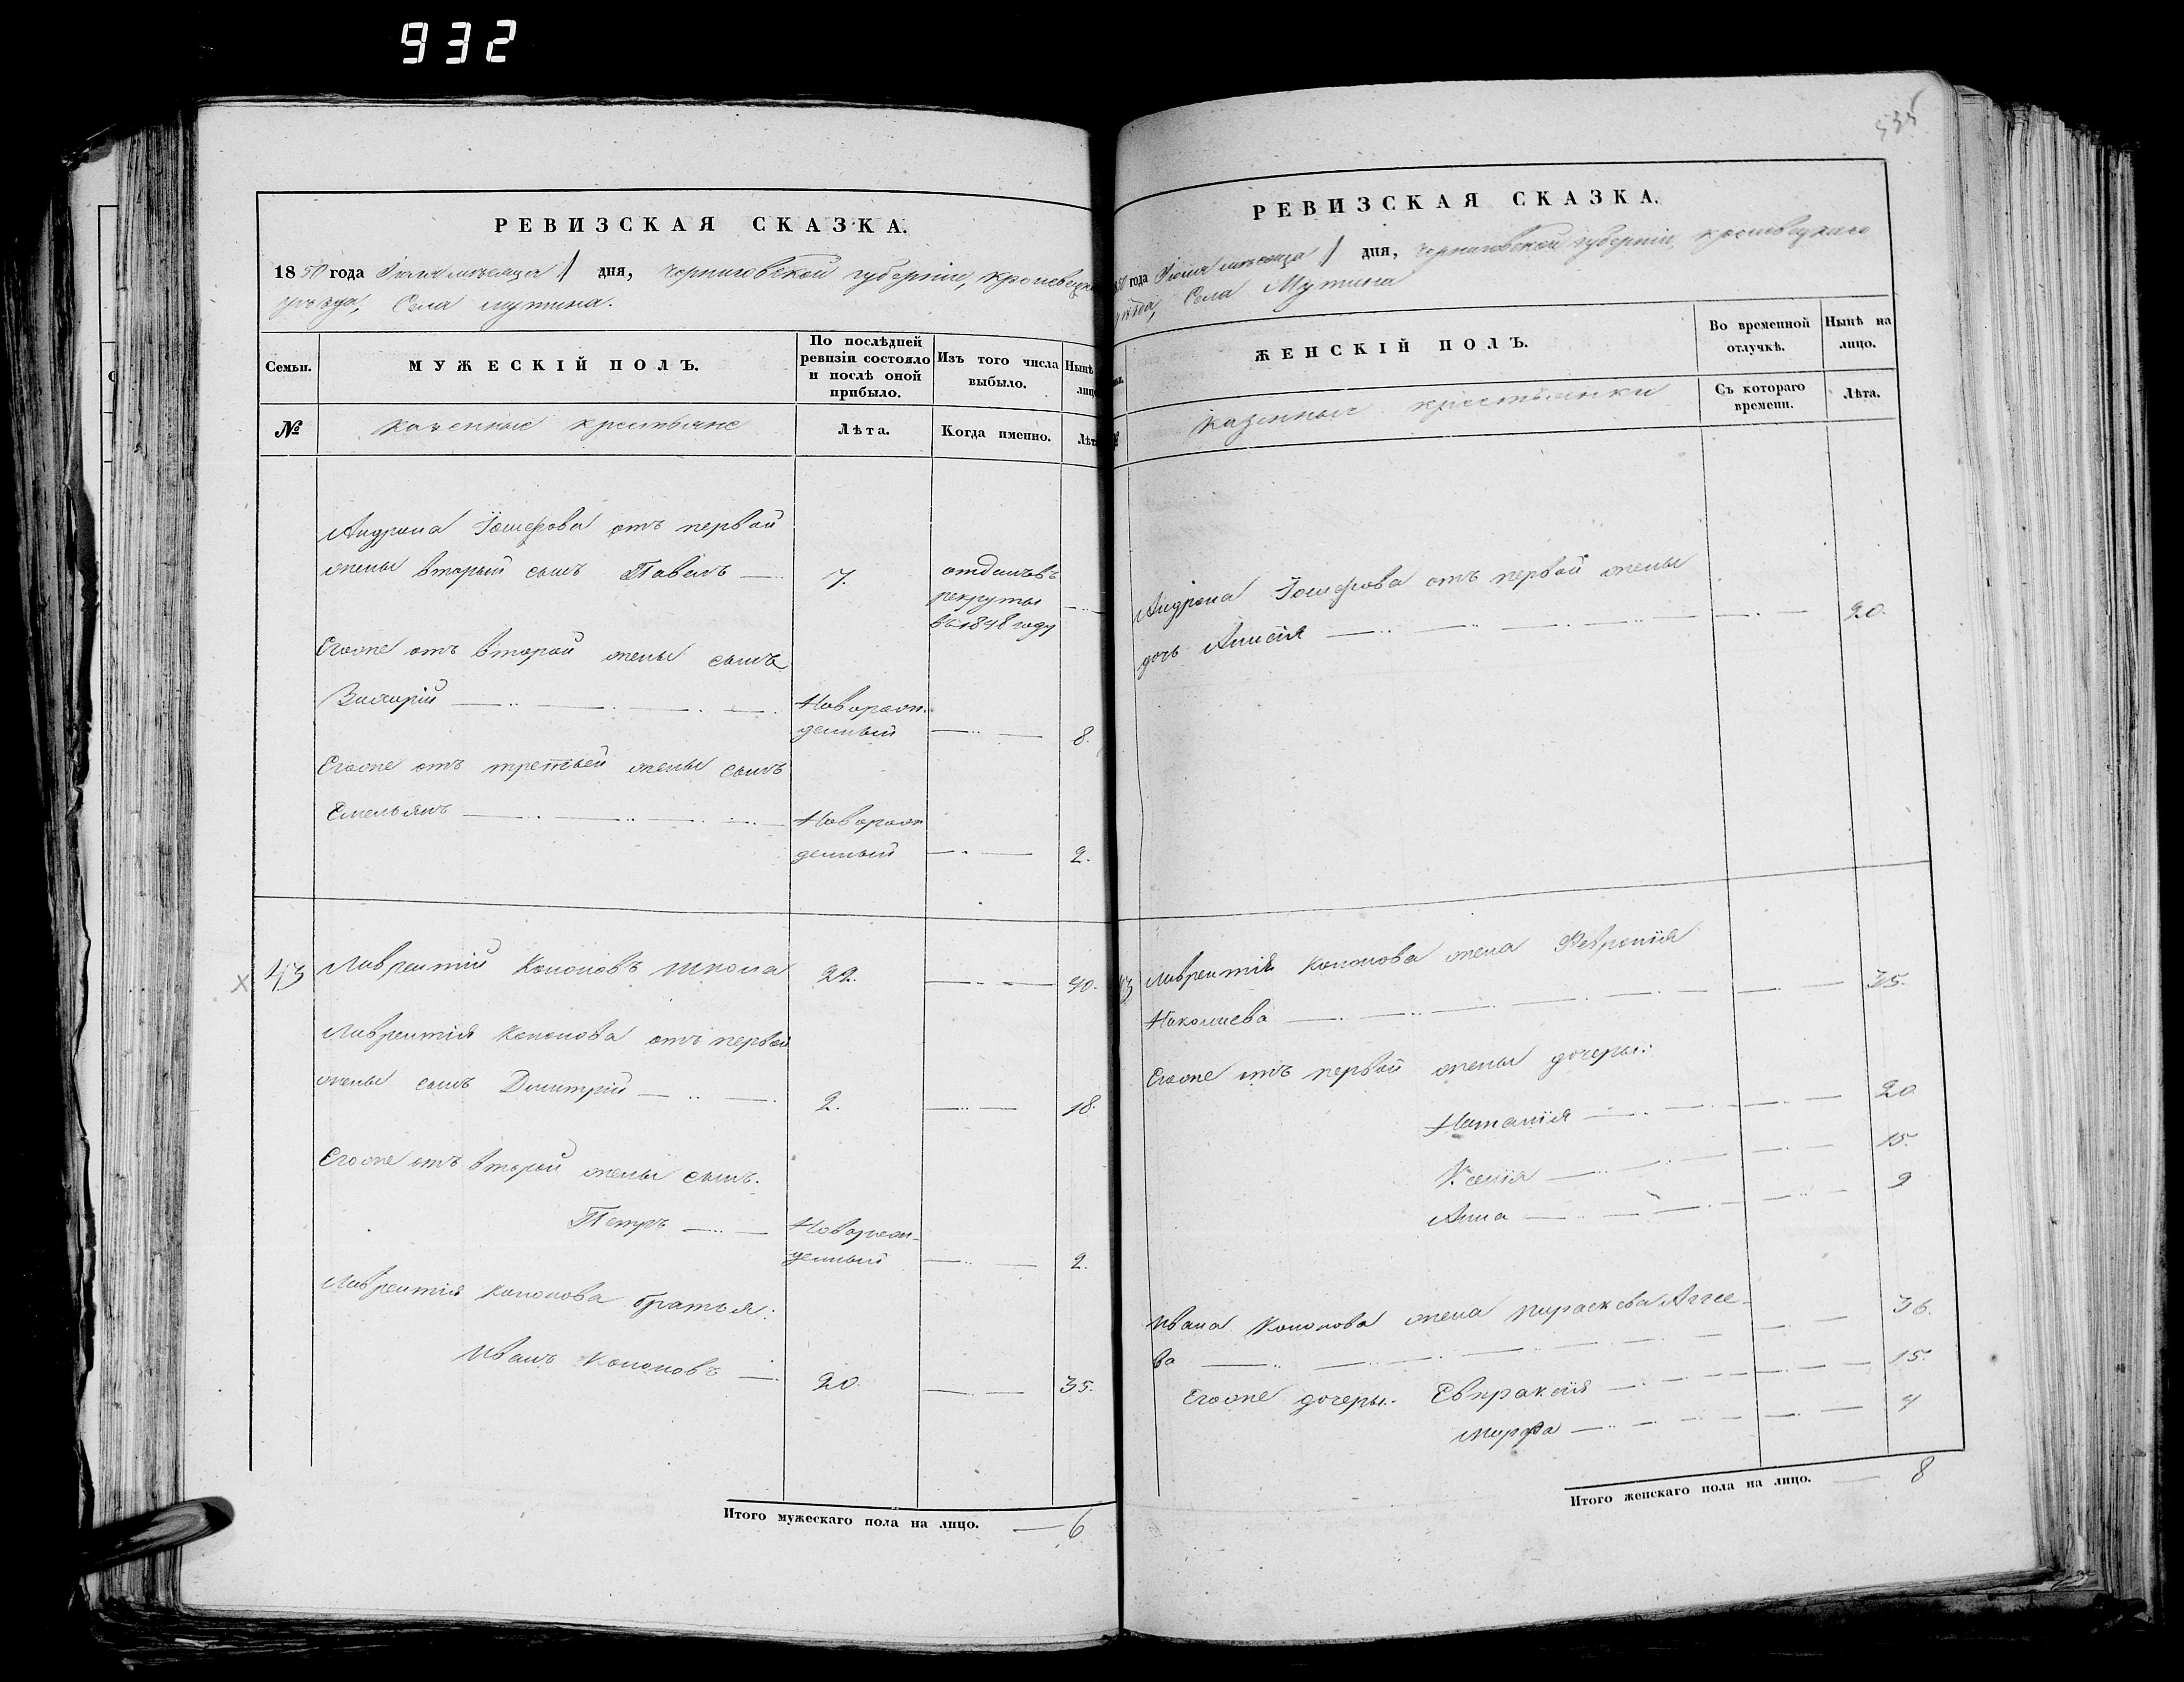 932
РЕВИЗСКАЯ СКАЗКА.
1850 года Іюля мѣсяца 1 дня, Черниговской губерніи, Кролевецка
уѣзда, Села Мутина.
Семьи.
МУЖЕСКІЙ ПОЛЪ.
По послѣдней ревизіи состояло и послѣ оной прибыло.
Изъ того числа выбыло.
Нынѣ
№
Казенные крестьяне
Лѣта.
Когда именно.
Андрона Іосифова отъ первой
жены вторый сынъ Павелъ — 7. отданъ въ
рекруты
въ 1848 году
Егоже отъ второй жены сынъ
Захарій — Новорож-
денный — 8.
Егоже отъ третьей жены сынъ
Емельянъ — Новорож
денный — 2.
43 Лаврентій Кононовъ Шкома 22. — 40.
Лаврентія Кононова отъ первой
жены сынъ Димитрій — 2. — 18.
Егоже отъ второй жены сынъ.
Петръ — Новорож-
денный — 2.
Лаврентія Кононова братья:
Иванъ Кононовъ — 20. — 35.
Итого мужескаго пола на лицо. — 6
535
РЕВИЗСКАЯ СКАЗКА.
года Іюля мѣсяца 1 дня, Черниговской губерніи, Кролевецкаго
уѣзда, Села Мутина
ЖЕНСКІЙ ПОЛЪ.
Во временной отлучкѣ.
Нынѣ на лицо.
Казенныя крестьянки
Съ котораго времени.
Лѣта.
Андрона Іосифова отъ первой жены
дочь Анисія — 20.
Лаврентія Кононова жена Феѳронія
Николаева — 35.
Егоже отъ первой жены дочеры:
Наталія — 20
Ксенія — 15.
Анна — 9
Ивана Кононова жена Параскева Аггее-
ва — 36.
Егоже дочеры: Евпраксія — 15.
Марфа — 4
Итого женскаго пола на лицо. — 8